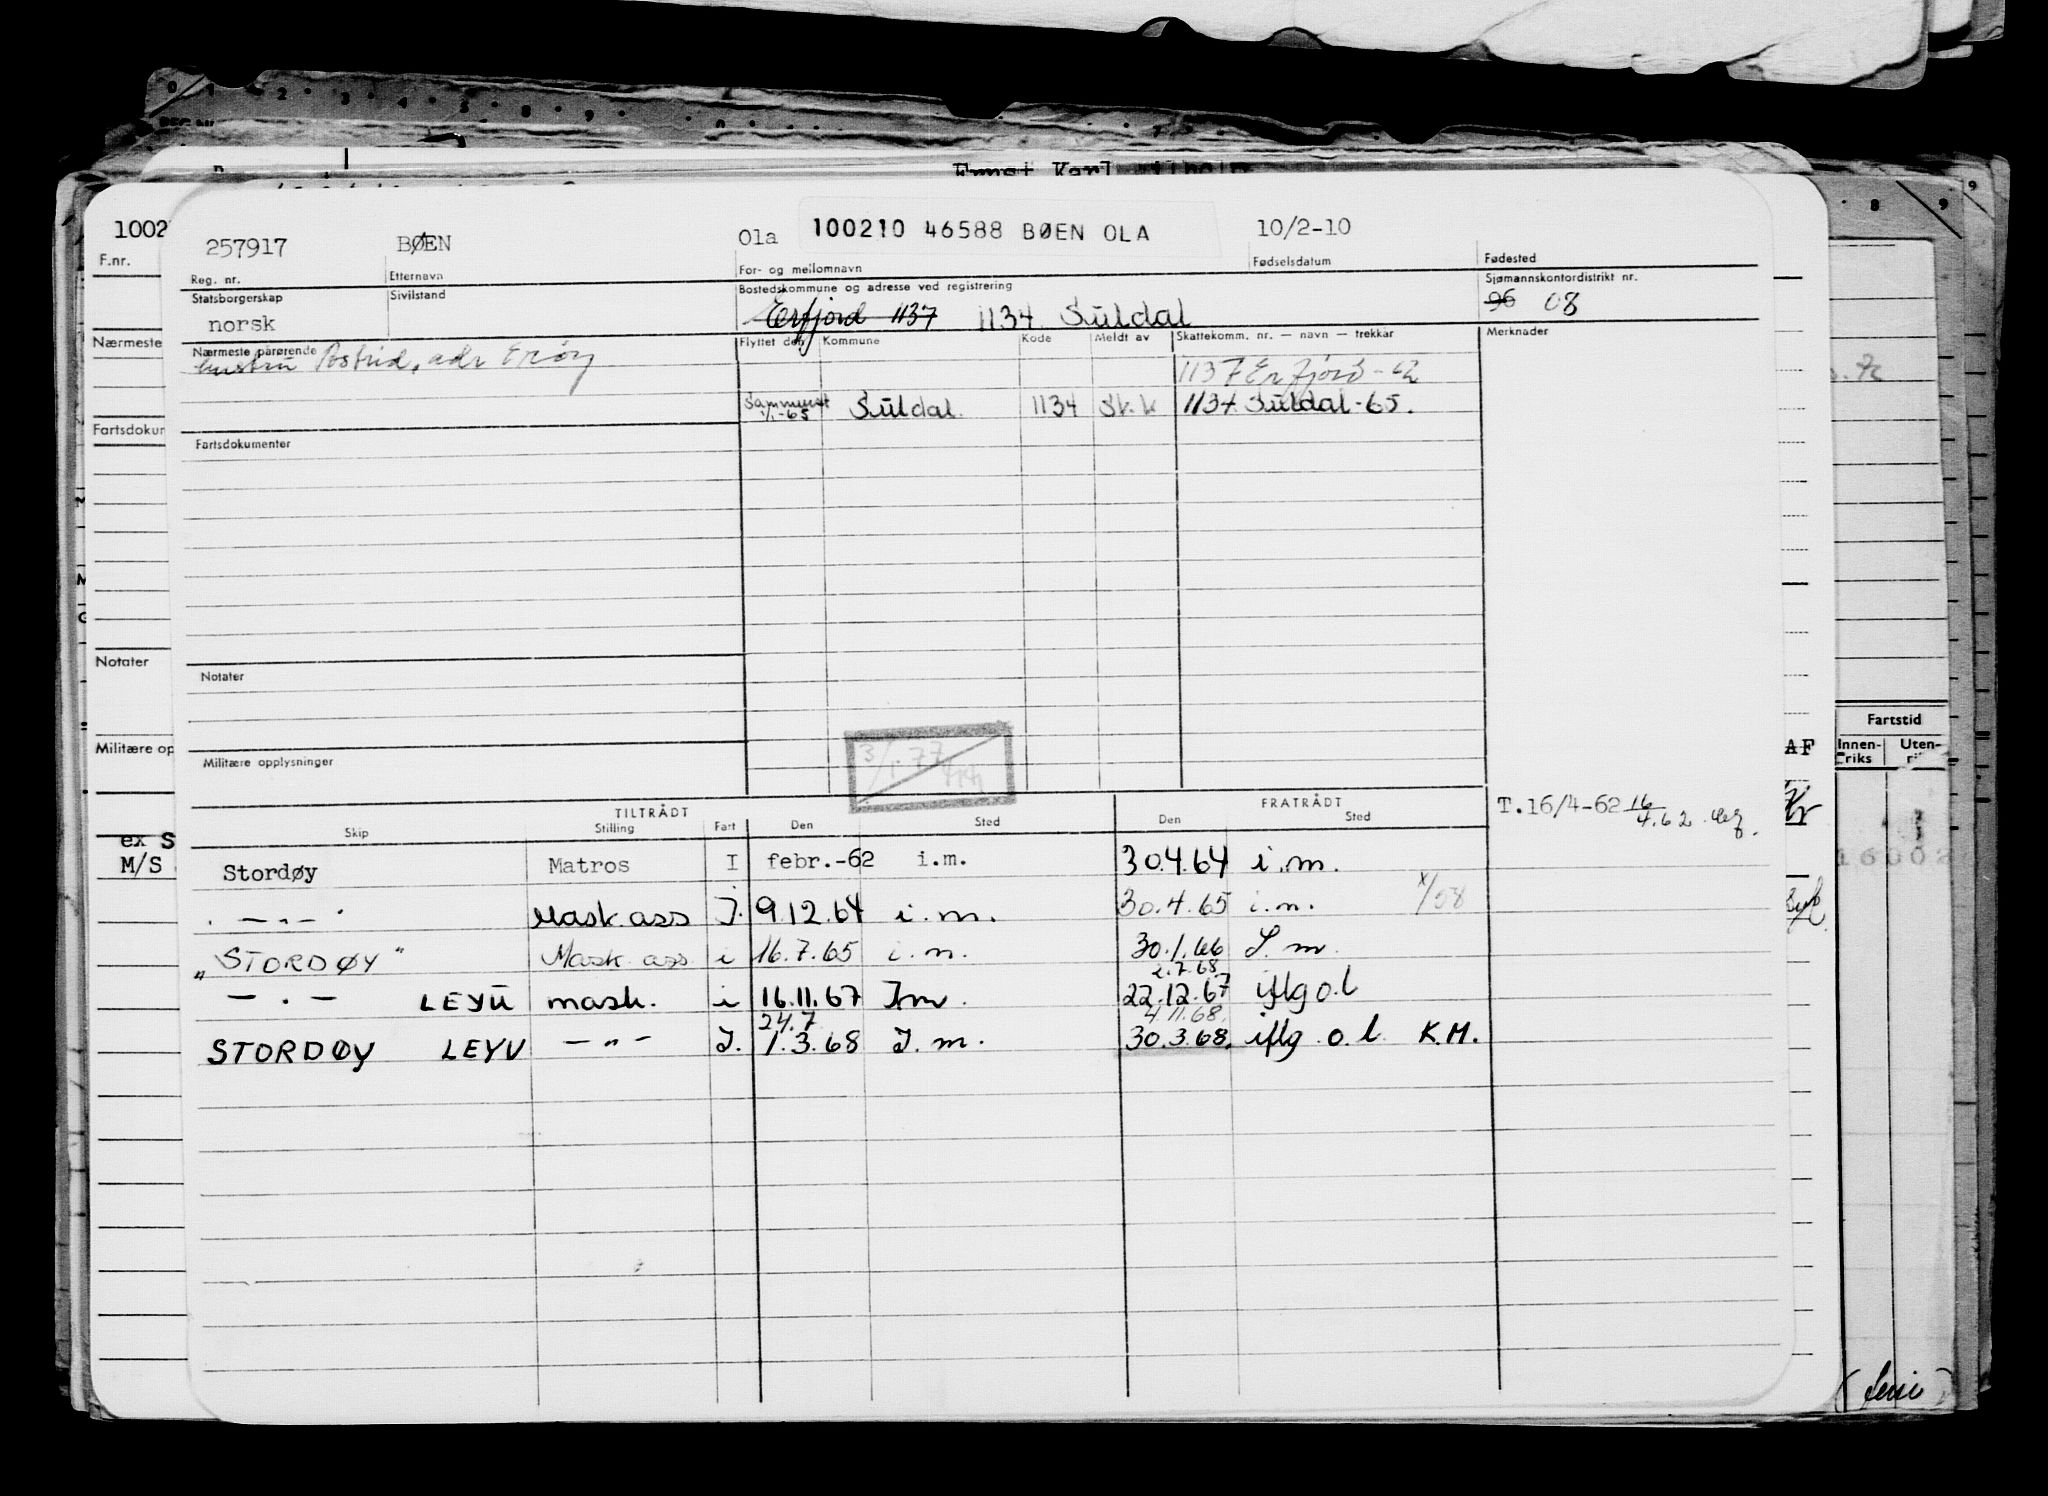 Ernst Karl
1002
F.nr.
257917 BØEN Ola 100210 46588 BØEN OLA 10/2-10
Reg. nr. Etternavn For- og mellomnavn Fødselsdatum Fødested
Statsborgerskap Sivilstand Bostedskommune og adresse ved registrering Sjømannskontordistrikt nr.
norsk Erfjord 1137 1134 Suldal 96 08
Nærmeste pårørende Flyttet den Kommune Kode Meldt av Skattekomm. nr. — navn — trekkår Merknader
Nærmeste
Astrid, adr 1137 Erfjord - 62
1/1-65 Suldal 1134 Sk.k 1134 Suldal-65.
Fartsdokumenter
Notater
Notater
Fartstid
Militære opplysninger
Militære op
Innen- Uten-
riks
3/1.77
TILTRÅDT FRATRÅDT T.16/4-62 16/4.62
Skip Stilling Fart Den Sted Den Sted
ex S
M/S
Stordøy Matros I febr.-62 i.m. 30.4.64 i.m.
— " — Mask.ass I. 9.12.64 i.m. 30.4.65 i.m. x/58
"STORDØY" Mask.ass i 16.7.65 i.m. 30.1.66 I.m.
2.7.68
— " — LEYU mask. i 16.11.67 Im. 22.12.67 iflg o.l
24.7 4.11.68.
STORDØY LEYV — " — I. 1.3.68 I.m. 30.3.68. iflg. o.l. K.M.